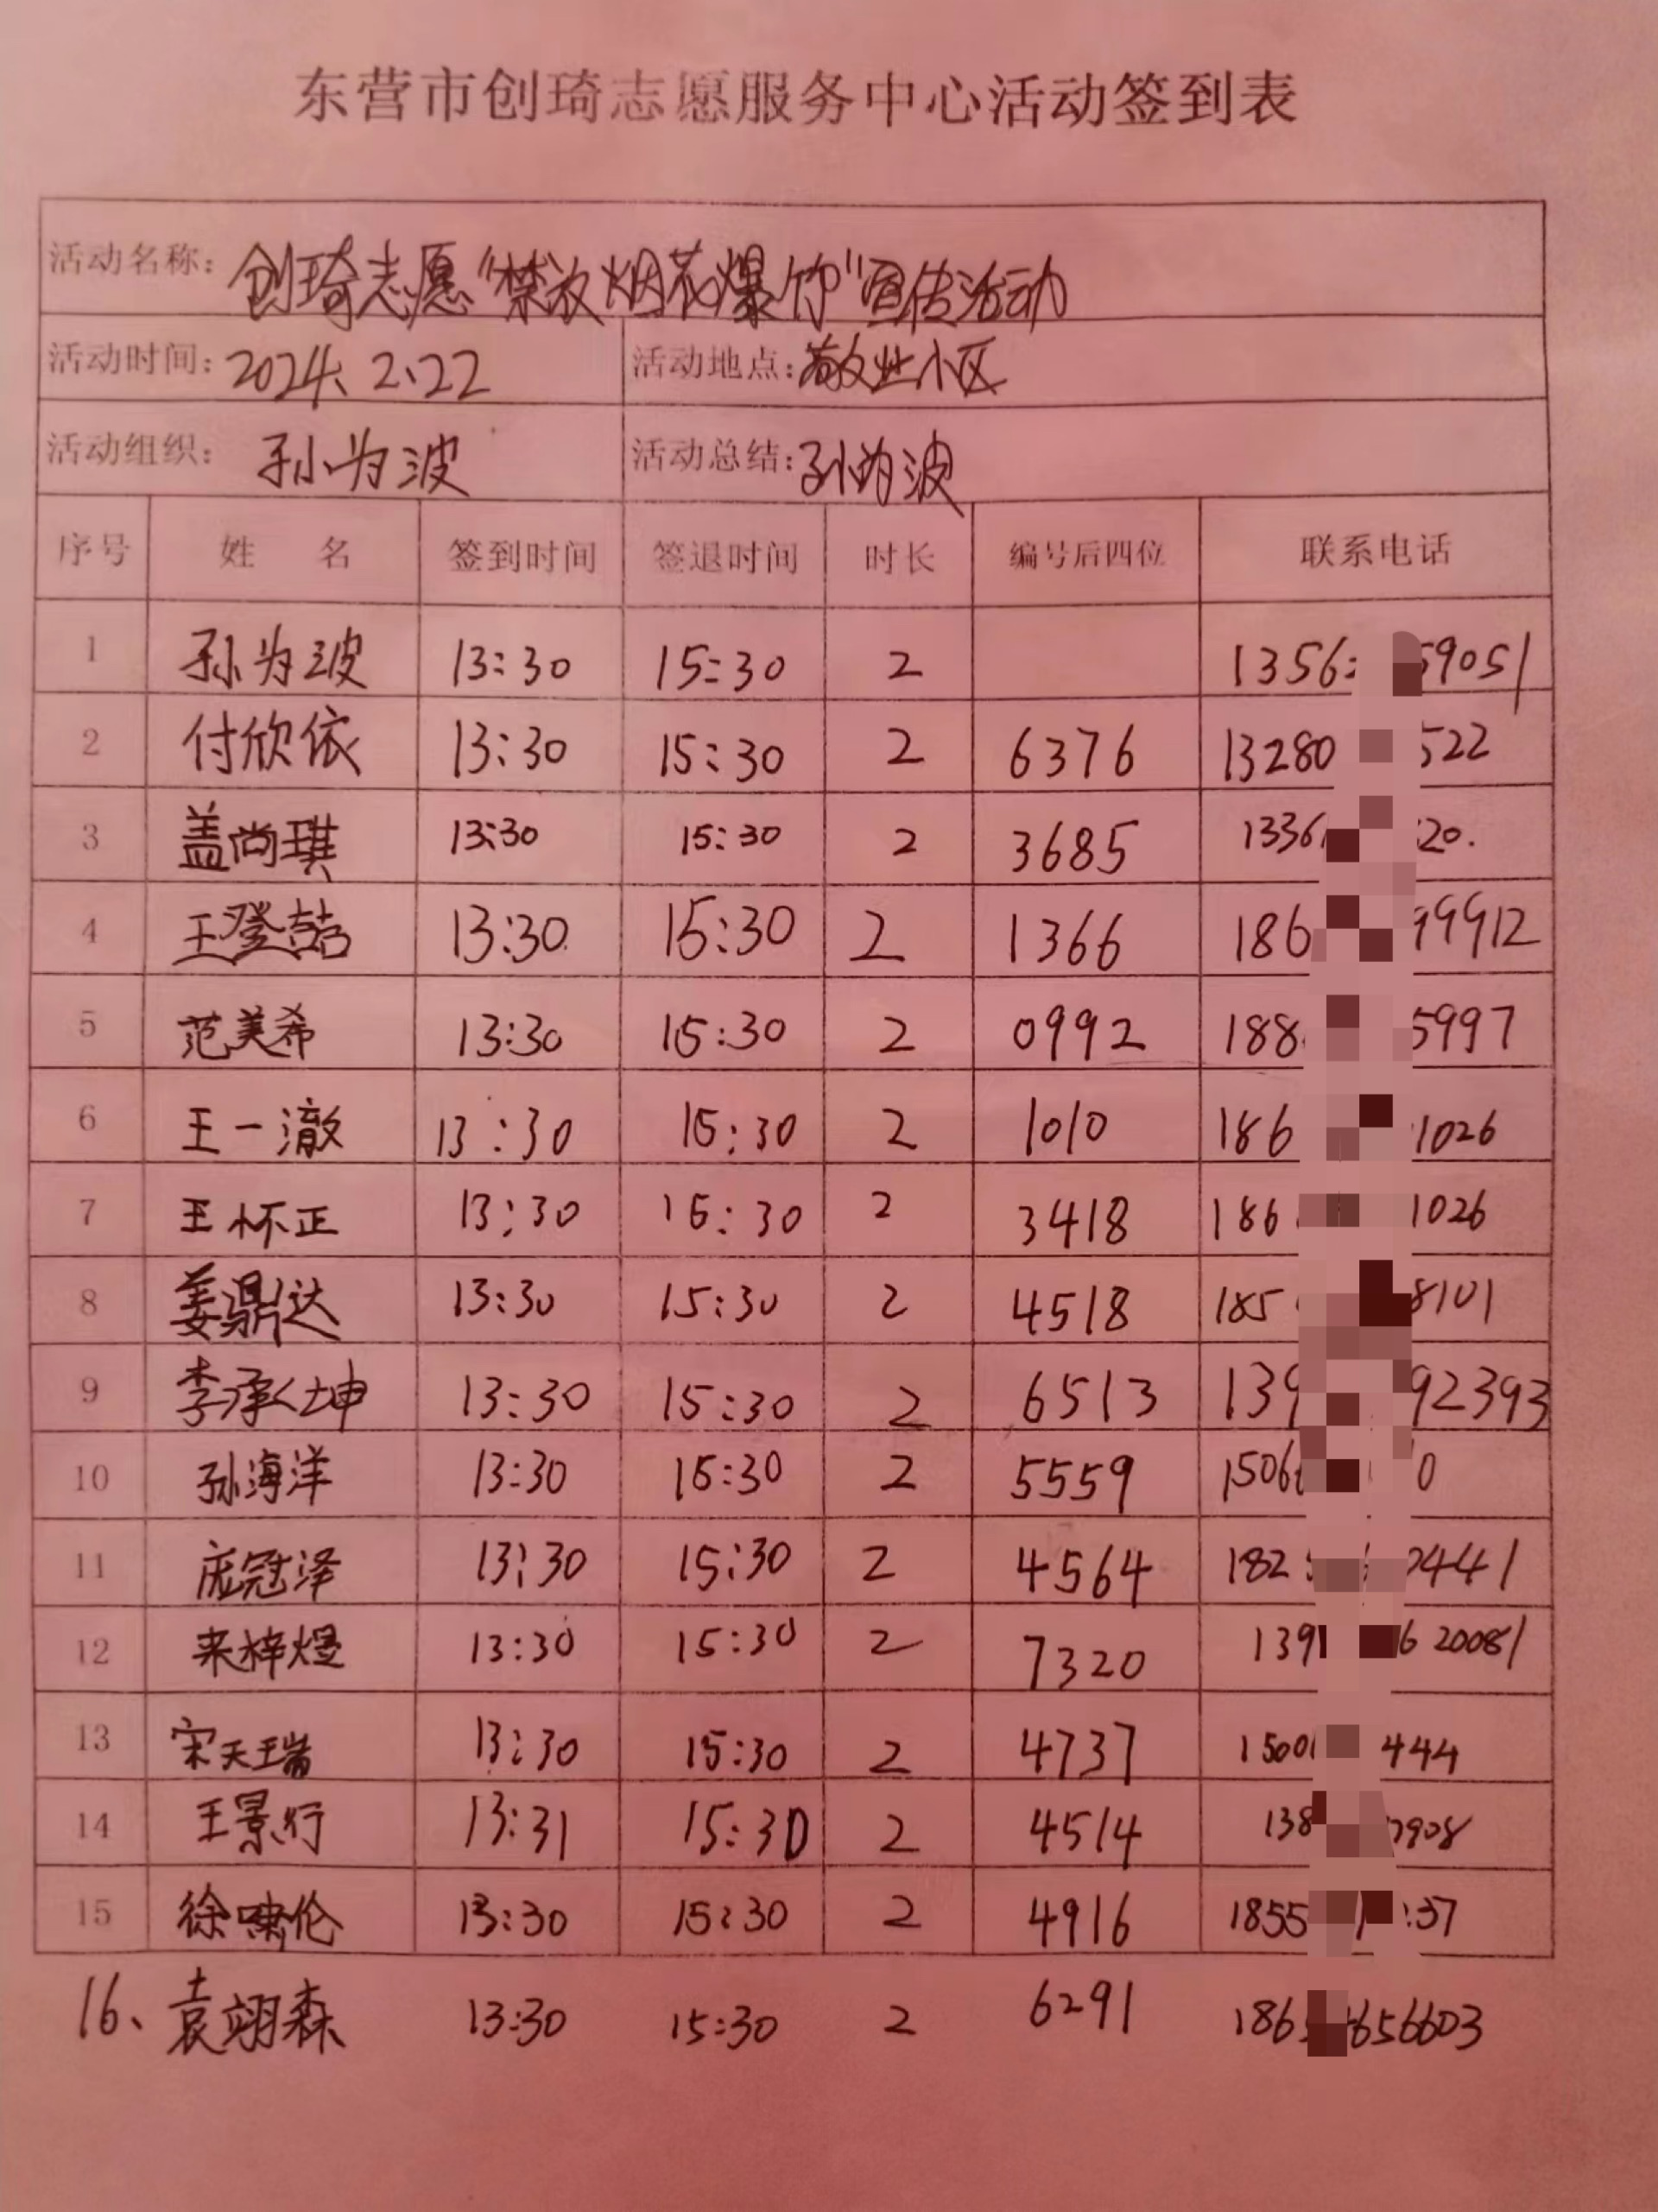 东营市创琦志愿服务中心活动签到表
活动名称: 创琦志愿“禁放烟花爆竹”宣传活动
活动时间: 2024、2、22 活动地点: 敬业小区
活动组织: 孙为波 活动总结: 孙为波
序号 姓 名 签到时间 签退时间 时长 编号后四位 联系电话
1 孙为波 13:30 15:30 2 1356 59051
2 付欣依 13:30 15:30 2 6376 13280 522
3 盖尚琪 13:30 15:30 2 3685 1336 20.
4 王登喆 13:30 15:30 2 1366 186 99912
5 范美希 13:30 15:30 2 0992 188 5997
6 王一澈 13:30 15:30 2 1010 186 1026
7 王怀正 13:30 15:30 2 3418 186 1026
8 姜鼎达 13:30 15:30 2 4518 185 8101
9 李承坤 13:30 15:30 2 6513 139 92393
10 孙海洋 13:30 15:30 2 5559 1506 0
11 庞冠泽 13:30 15:30 2 4564 182 0441
12 来梓煜 13:30 15:30 2 7320 139 6 20081
13 宋天瑞 13:30 15:30 2 4737 1500 444
14 王景行 13:31 15:30 2 4514 138 7908
15 徐啸伦 13:30 15:30 2 4916 1855 37
16、袁翊森 13:30 15:30 2 6291 186 656603